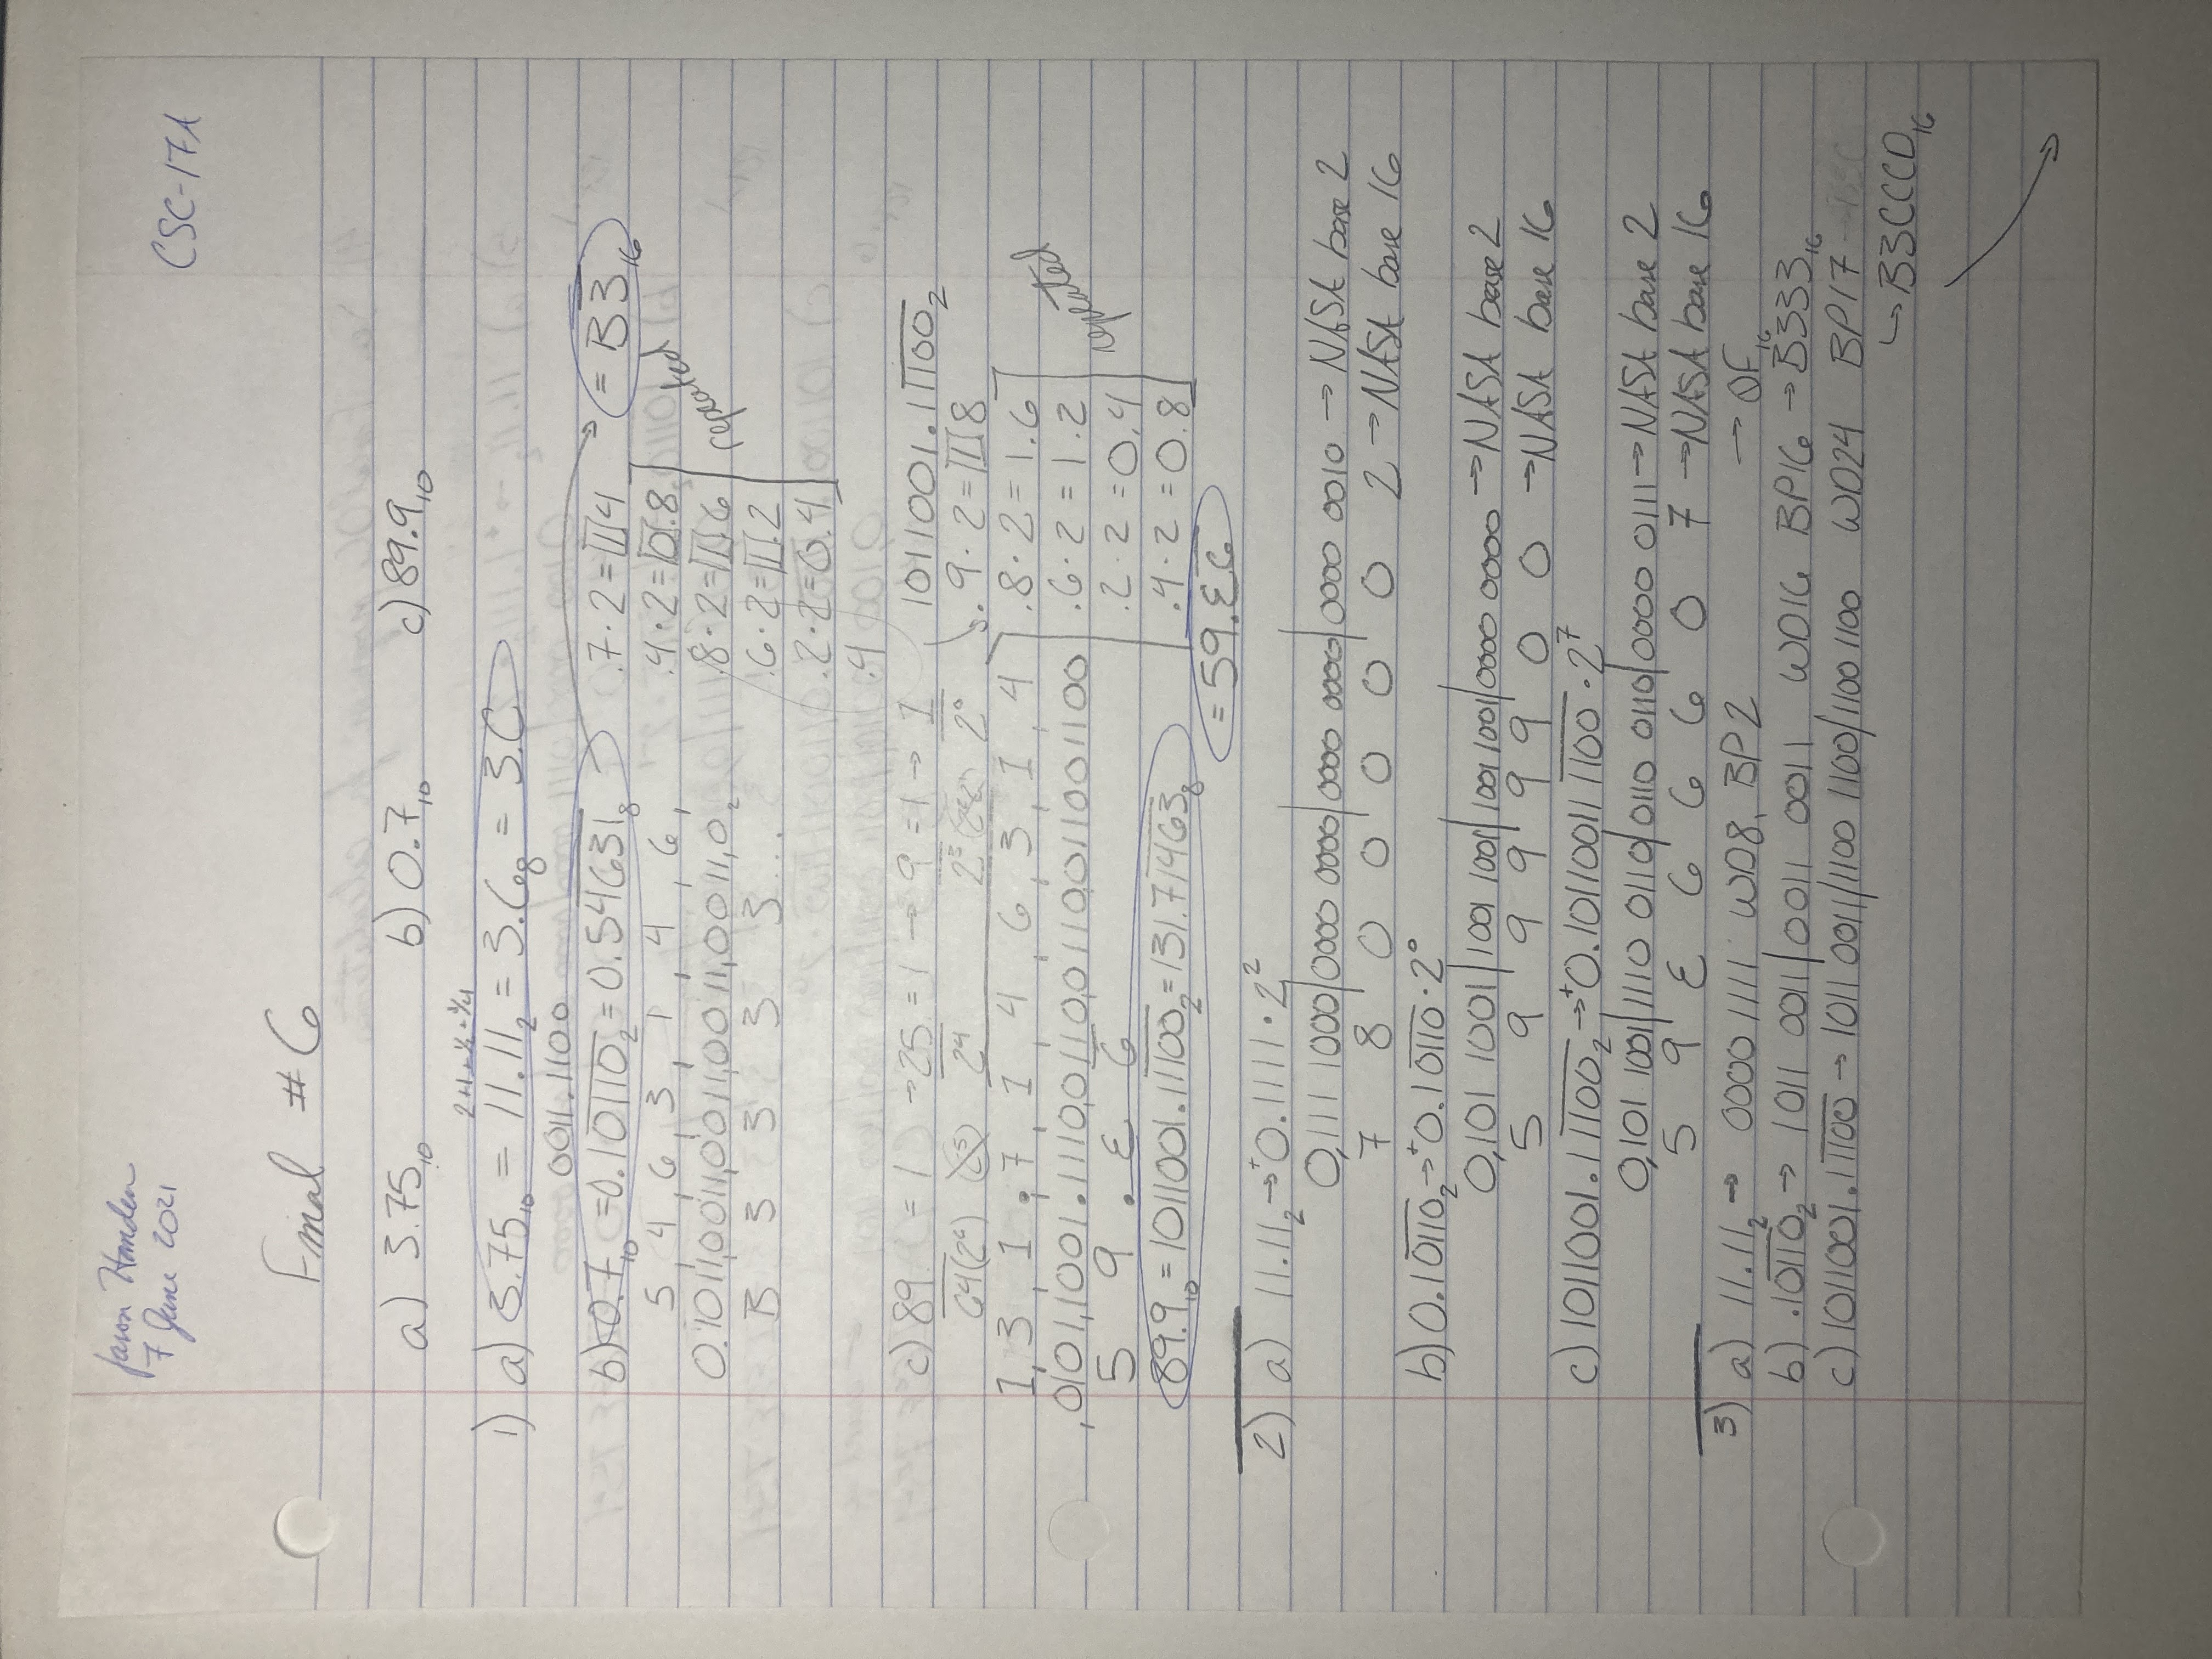 Jason Handen
7 June 2021
CSC-17A
Final #6
a) 3.75₁₀ b) 0.7₁₀ c) 89.9₁₀
2+1+½+¼
1) a) 3.75₁₀ = 11.11₂ = 3.6₈ = 3.C
0011.1100
b) 0.7₁₀ = 0.1̅0̅1̅1̅0̅₂ = 0.54631₈ .7·2=1.4 = B3₁₆
5, 4, 6, 3, 1, 4, 6, .4·2=0.8
0.1011,0011,0011,0011,0011,0₂ .8·2=1.6 repeated
B 3 3 3 3... .6·2=1.2
.2·2=0.4
.4
c) 89 = 1 → 25 = 1 → 9 = 1 → 1 1011001.11100₂
64(2⁶) 2⁴ 2³ 2⁰ .9·2=1.8
1,3,1.7,1,4,6,3,1,4 .8·2=1.6
,0101,1001.1110,0110,0110,011001100 .6·2=1.2 repeated
5 9 . E 6 .2·2=0.4
89.9₁₀ = 1011001.11100₂ = 131.71463₈ .4·2=0.8
= 59.E6
2) a) 11.11₂ → +0.1111·2²
0,111 1000|0000 0000|0000 0000|0000 0010 → NASA base 2
7 8 0 0 0 0 0 2 → NASA base 16
b) 0.10110₂ → +0.10110·2⁰
0,101 1001|1001 1001|1001 1001|0000 0000 → NASA base 2
5 9 9 9 9 9 0 0 → NASA base 16
c) 1011001.11100₂ → +0.101100111100·2⁷
0,101 1001|1110 0110|0110 0110|0000 0111 → NASA base 2
5 9 E 6 6 6 0 7 → NASA base 16
3) a) 11.11₂ → 0000 1111 WD8, BP2 → 0F₁₆
b) .10110₂ → 1011 0011/0011 0011 WD16 BP16 → B333₁₆
c) 1011001.11100 → 1011 0011/1100 1100/1100 1100 WD24 BP17
↳ B3CCCD₁₆